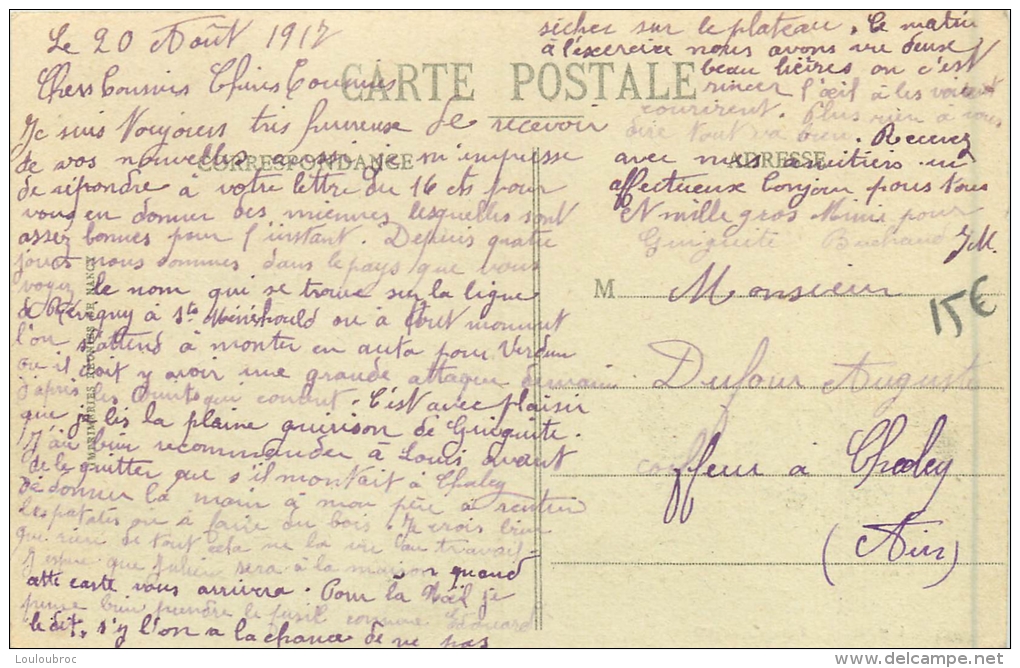 Le 20 Août 1917
Chers Cousins Chères Cousines
CARTE POSTALE
Je suis toujours très heureuse de recevoir
de vos nouvelles aussi je m'empresse
de répondre à votre lettre du 16 ct pour
vous en donner des miennes lesquelles sont
assez bonnes pour l'instant. Depuis quatre
jours nous sommes dans le pays que vous
voyez le nom qui se trouve sur la ligne
de Révigny à Ste Menéhould ou à tout moment
l'on s'attend à monter en auto pour Verdun
ou il doit y avoir une grande attaque demain
d'après les bruits qui courent. C'est avec plaisir
que je lis la plaine guérison de Guiguite.
J'ai bien recommander à Louis avant
de le quitter que s'il montait à Chaley
de donner la main à mon père à rentrer
les patates ou à faire du bois. Je crois bien
que rien de tout cela ne la vu au travail
J'espère que Julien sera à la maison quand
cette carte vous arrivera. Pour la Noël je
pense bien prendre le fusil comme Edouard
le dit, s'y l'on a la chance de ne pas
sécher sur le plateau. Ce matin
à l'exercire nous avons vu deux
beau lièvres on c'est
rincer l'œil à les voir
courirent. Plus rien à vous
dire tout va bien. Recevez
avec mes amitiers un
affectueux bonjour pour tous
Et mille gros Mimi pour
Guiguite Buchaud
J.M.
CORRESPONDANCE
ADRESSE
IMPRIMERIES RÉUNIES DE NANCY
M. Monsieur
Dufour Auguste
coiffeur à Chaley
(Ain)
15€
Louloubroc
http://www.delcampe.net